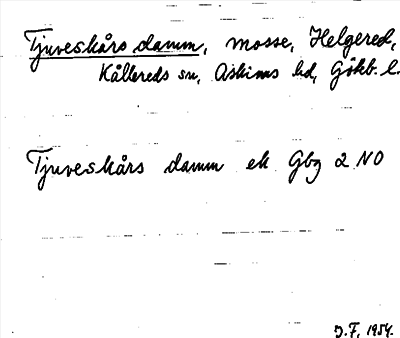 Tjuveskårs damm, mosse, Helgered,
Kållereds sn, Askims hd, Göteb. l.
Tjuveskårs damm ek Gbg 2 NO
J.F. 1954.